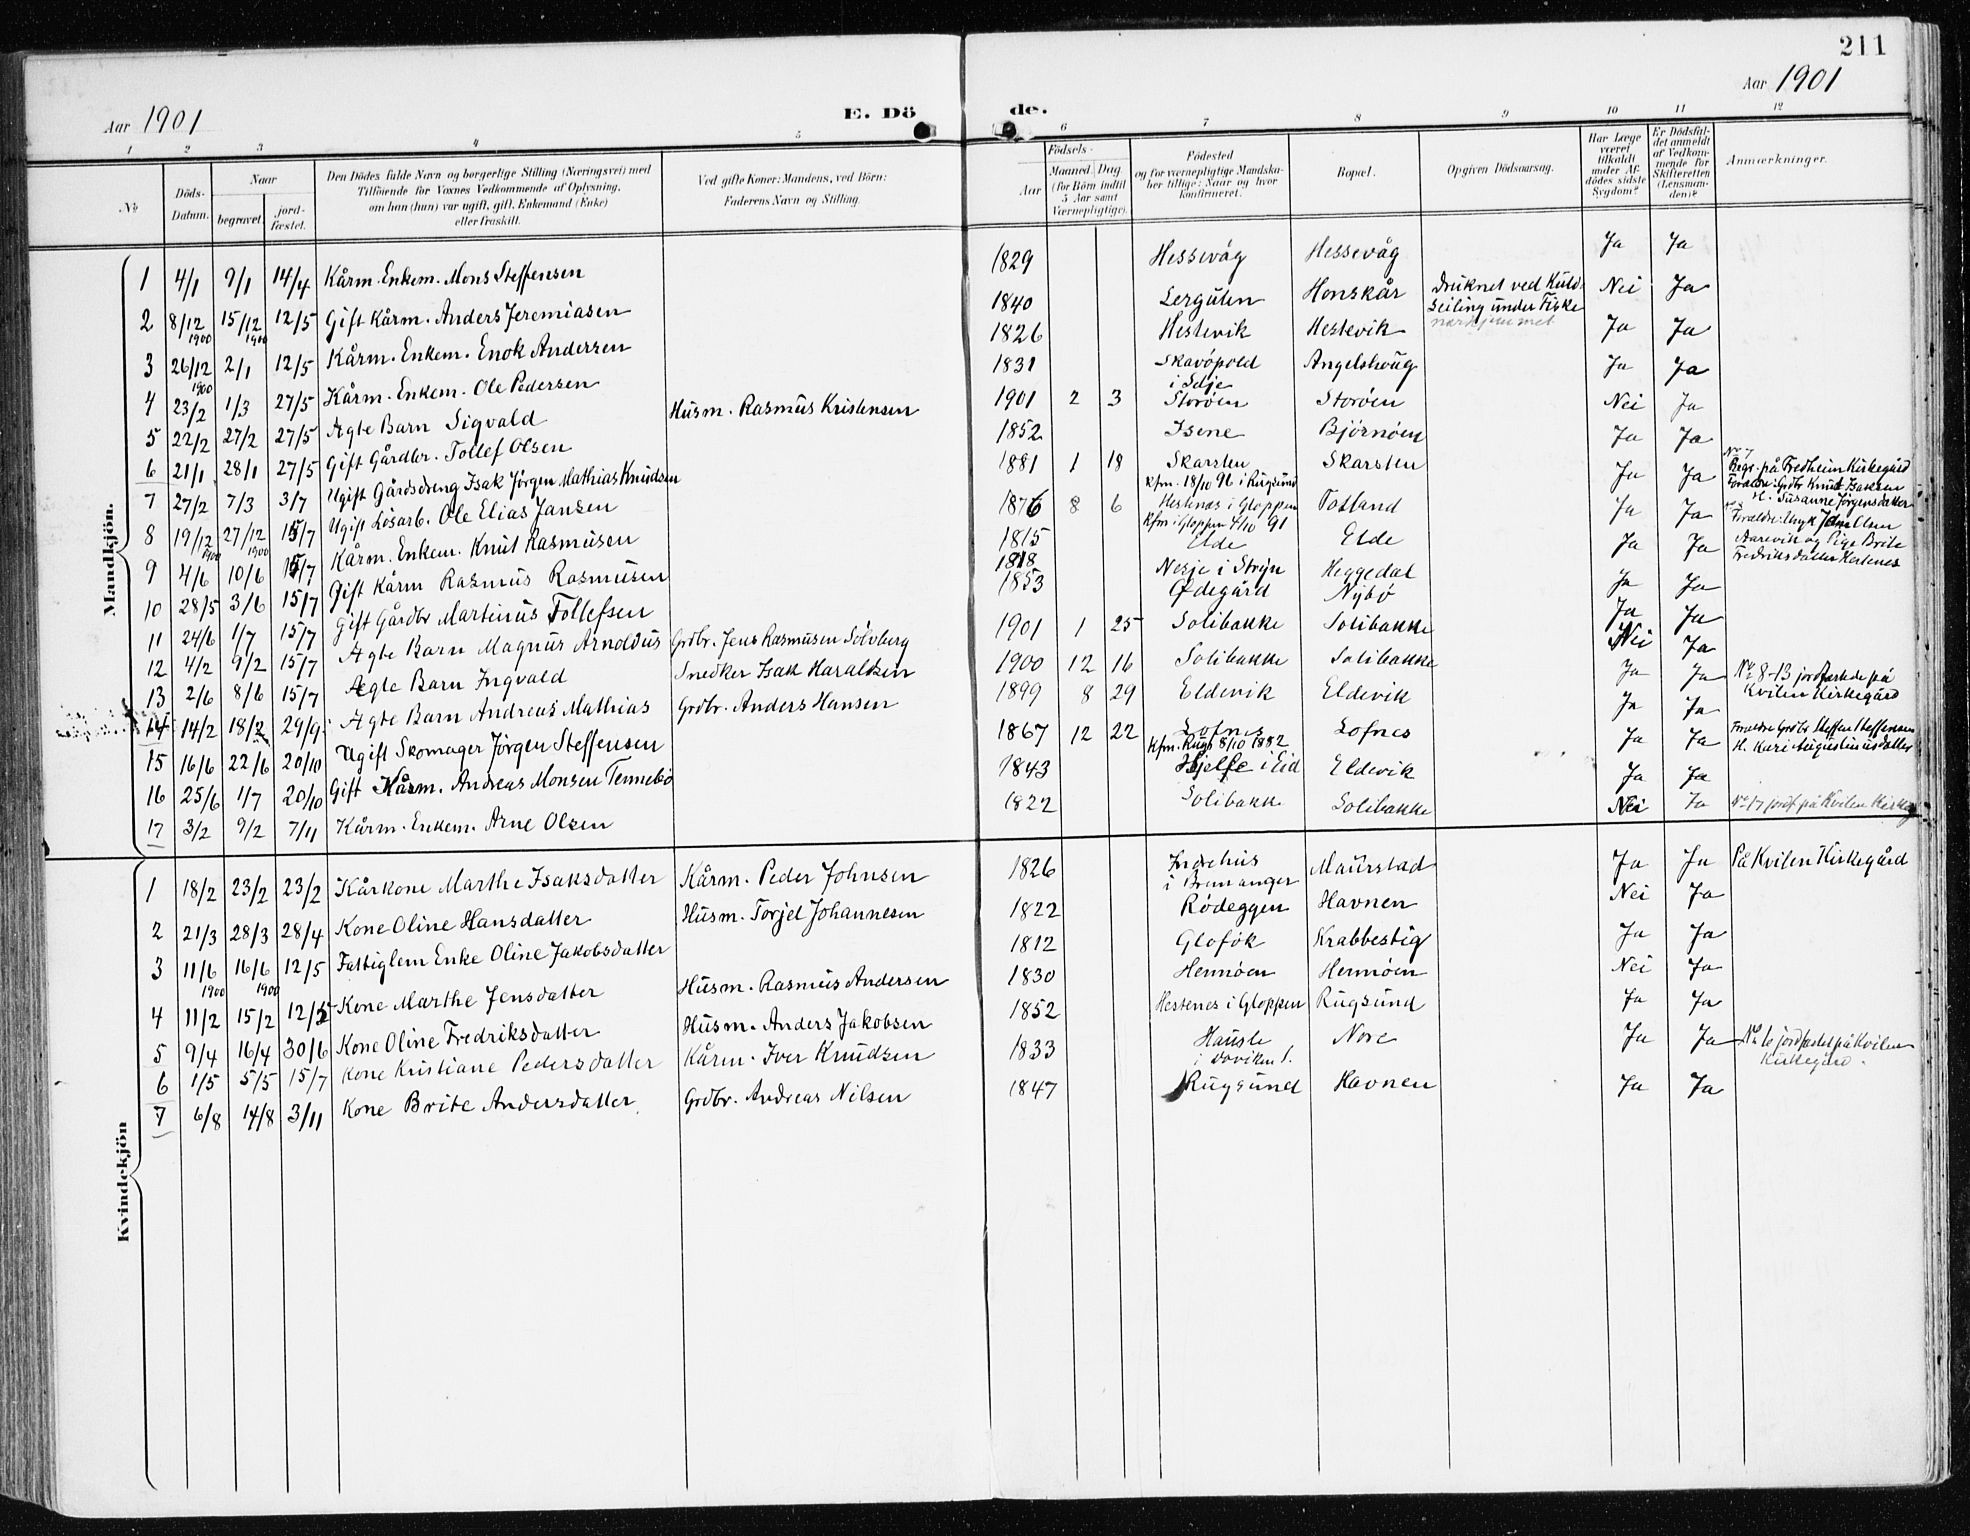 211
Aar 1901
E. Dö de.
Aar 1901
1 2 3 4 5 6 7 8 9 10 11 12
No
Döds-Datum.
Naar
begravet.
jord-fæstet.
Den Dödes fulde Navn og borgerlige Stilling (Næringsvei) med
Tilföiende for Voxnes Vedkommende af Oplysning,
om han (hun) var ugift, gift, Enkemand (Enke)
eller fraskilt.
Ved gifte Koner: Mandens, ved Börn:
Faderens Navn og Stilling.
Födsels-
Aar
Maaned Dag
(for Börn indtil
5 Aar samt
Værnepligtige).
Födested
og for værnepligtige Mandska-
ber tillige: Naar og hvor
konfirmeret.
Bopæl.
Opgiven Dödsaarsag.
Har Læge
været
tilkaldt
under Af-
dödes sidste
Sygdom?
Er Dödsfal-
det anmeldt
af Vedkom-
mende for
Skifteretten
(Lensman-
den)?
Anmærkninger.
Mandkjön.
1 4/1 9/1 14/4 Kårm. Enkem. Mons Steffensen 1829 Hessevåg Hessevåg Ja Ja
2 8/12 1900 15/12 1900 12/5 Gift Kårm. Anders Jeremiasen 1840 Lergulen Honskår Druknet ved Kuld-
Seiling under Fiske
Nei Ja
3 26/12 1900 2/1 12/5 Kårm. Enkem. Enok Andersen 1826 Hestevik Hestevik Ja Ja
4 23/2 1/3 27/5 Kårm. Enkem. Ole Pedersen 1831 Skavöpold i Selje Angelshoug Ja Ja
5 22/2 27/2 27/5 Ægte Barn Sigvald Husm. Rasmus Kristensen 1901 2 3 Storöen Storöen Nei Ja
6 21/1 28/1 27/5 Gift Gårdbr. Tollef Olsen 1852 Isene Björnöen Ja Ja
7 27/2 7/3 3/7 Ugift Gårdsdreng Isak Jörgen Mathias Knudsen 1881 1 18 Skarsten Kfm. 18/10 96 i Rugsund Skarsten Ja Ja No 7
Begr. på Fredheim Kirkegård
Forældr. Grdbr Knut Isaksen
H. Susanne Jörgensdatter
8 19/12 1900 27/12 1900 15/7 Ugift Lösarb. Ole Elias Jansen 1876 8 6 Hestenes i Gloppen
Kfm i Gloppen 4/10 91 Totland Ja Ja
Olsen
Aarevik og Pige Brite
Fredriksdatter Hestenes
9 4/6 10/6 15/7 Kårm. Enkem. Knut Rasmusen 1815 Elde Elde Ja Ja
10 28/5 3/6 15/7 Gift Kårm Rasmus Rasmusen 1818 Nesje i Stryn Heggedal Ja Ja
11 24/6 1/7 15/7 Gift Gårdbr Martinus Tollefsen 1853 Ödegård Nybö Ja Ja
12 4/2 9/2 15/7 Ægte Barn Magnus Arnoldus Grdbr. Jens Rasmusen Solvberg 1901 1 25 Solibakke Solibakke Nei Ja
13 2/6 8/6 15/7 Ægte Barn Ingvald Snedker Isak Haraldsen 1900 12 16 Solibakke Solibakke Ja Ja No 8-13 jordfæstede på
Kvilen Kirkegård
14 14/2 18/2 29/9 Ægte Barn Andreas Mathias Grdbr. Anders Hansen 1899 8 29 Eldevik Eldevik Ja Ja
15 16/6 22/6 20/10 Ugift Skomager Jörgen Steffensen 1867 12 22 Lofnes
Kfm. Rugs 8/10 1882 Lofnes Ja Ja Forældre Grdbr Steffen Steffensen
H. Kari Augustinusdatter
16 25/6 1/7 20/10 Gift Kårm. Andreas Monsen Tennebö 1843 Hjelle i Eid Eldevik Ja Ja
17 3/2 9/2 7/11 Kårm. Enkem. Arne Olsen 1822 Solibakk Solibakke Nei Ja No 17 jordf på Kvilen Kirkeg
Kvindekjön
1 18/2 23/2 23/2 Kårkone Marthe Isaksdatter Kårm. Peder Johnsen 1826 Indrehus
i Bremanger Maurstad Ja Ja På Kvilen Kirkegård
2 21/3 28/3 28/4 Kone Oline Hansdatter Husm. Torjel Johannesen 1822 Rödeggen Havnen Nei Ja
3 11/6 1900 16/6 1900 12/5 Fattiglem Enke Oline Jakobsdatter 1812 Glofök Krabbestig Ja Ja
4 11/2 15/2 12/5 Kone Marthe Jensdatter Husm. Rasmus Andersen 1830 Hennöen Hennöen Nei Ja
5 9/4 16/4 30/6 Kone Oline Fredriksdatter Husm. Anders Jakobsen 1852 Hestenes i Gloppen Rugsund Ja Ja
6 1/5 5/5 15/7 Kone Kristiane Pedersdatter Kårm. Iver Knudsen 1833 Hausle
i Daviken S. Nore Ja Ja No 6 jordfæstet på Kvilen
Kirkegård.
7 6/8 14/8 3/11 Kone Brite Andersdatter Grdbr. Andreas Nilsen 1847 Rugsund Havnen Ja Ja